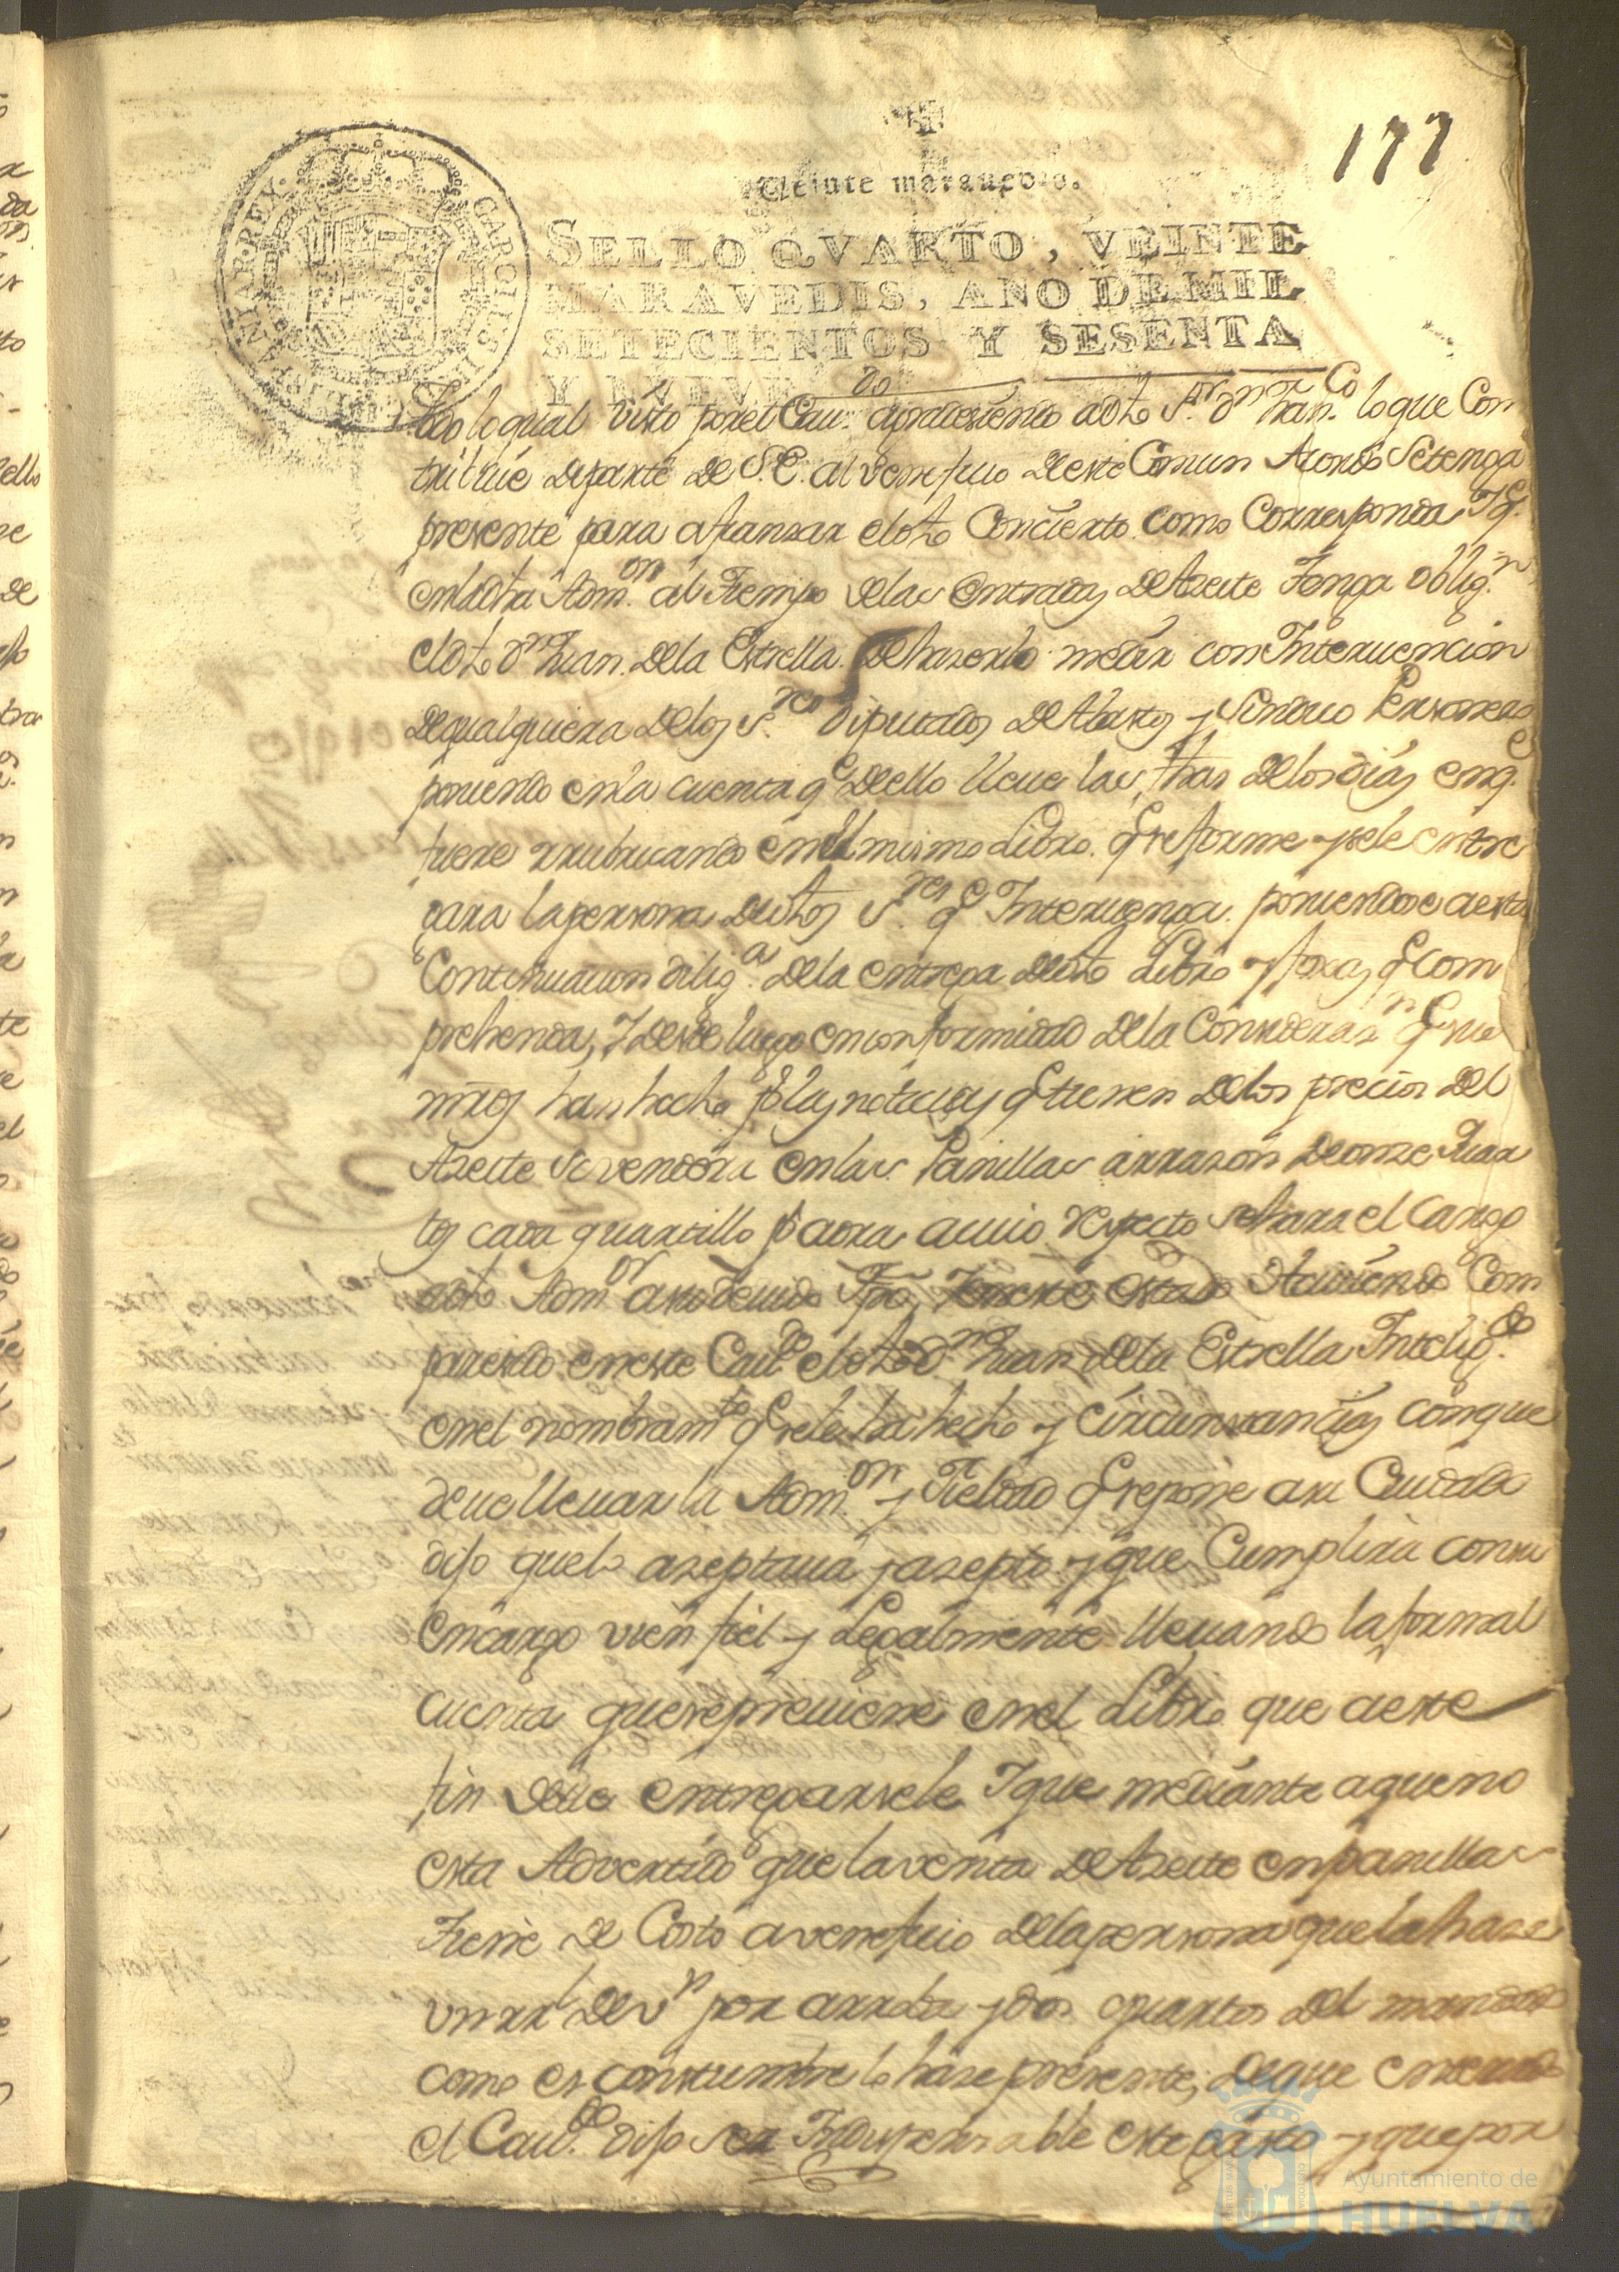 177
Veinte maravedis.
SELLO QVARTO, VEINTE
MARAVEDIS, AÑO DE MIL
SETECIENTOS Y SESENTA
Y NUEVE
CAROLUS III
todo lo qual visto por el Cauᵈᵒ. apradesiendo a dho Sʳ. Dⁿ Franᶜᵒ. lo que Con
tribuie de parte de S.E. al veneficio de este Comun Acordo se tenga
presente para afianzar el dho Concierto como Corresponda Y qᵉ.
en la dha Admᵒⁿ. al Tiempo de las entradas de Azeite Tenga obligⁿ.
el dho Dⁿ Juan de la Estrella de haserlo medir con Interuencion
de qualquiera de los Sʳᵉˢ Diputados de Abastos y Sindico Personero
poniendo en la cuenta qᵉ de ello lleue las fhas de los dias en qᵉ.
fuere y rubricando en el mismo Libro qᵉ se forme y se le entre
gara la persona de dhos Sʳᵉˢ qᵉ Interuenga. poniendose a esta
Continuacion diligᵃ. de la entrega de dho Libro y foxas qᵉ Com
prehenda, Y desde luego en conformidad de la Considerazⁿ qᵉ sus
mrds han hecho pʳ las noticias qᵉ tienen de los precios del
Azeite se vendera en las Panillas a rrazon de onze Quar
tos cada quartillo pʳ aora a cuio respecto se hara el Cargo
a dho Admᵒʳ a su deuido Tpo, Y en este estado Hauiendo Com
paresido en este Cauᵈᵒ el dho Dⁿ Juan de la Estrella Inteligᵈᵒ.
en el nombramᵗᵒ qᵉ se le ha hecho y Circunstancias con que
deue lleuar la Admᵒⁿ. y Fieldad qᵉ se pone a su Cuidado
dijo que lo azeptaua y azepto y que Cumplira con su
Encargo vien fiel y Legalmente lleuando la formal
cuenta que se preuiene en el Libro que a este
fin deue entregarsele Y que mediante a que no
esta Advertido que la venta de Azeite en panillas
Tiene de Costo a veneficio de la persona que la haze
un rrˡ de vⁿ por arroba y dos quartos del
como es constumbre lo haze presente, de que enterado
el Cauᵈᵒ. dijo ser Yndispensable este gasto y que por
Ayuntamiento de
HUELVA